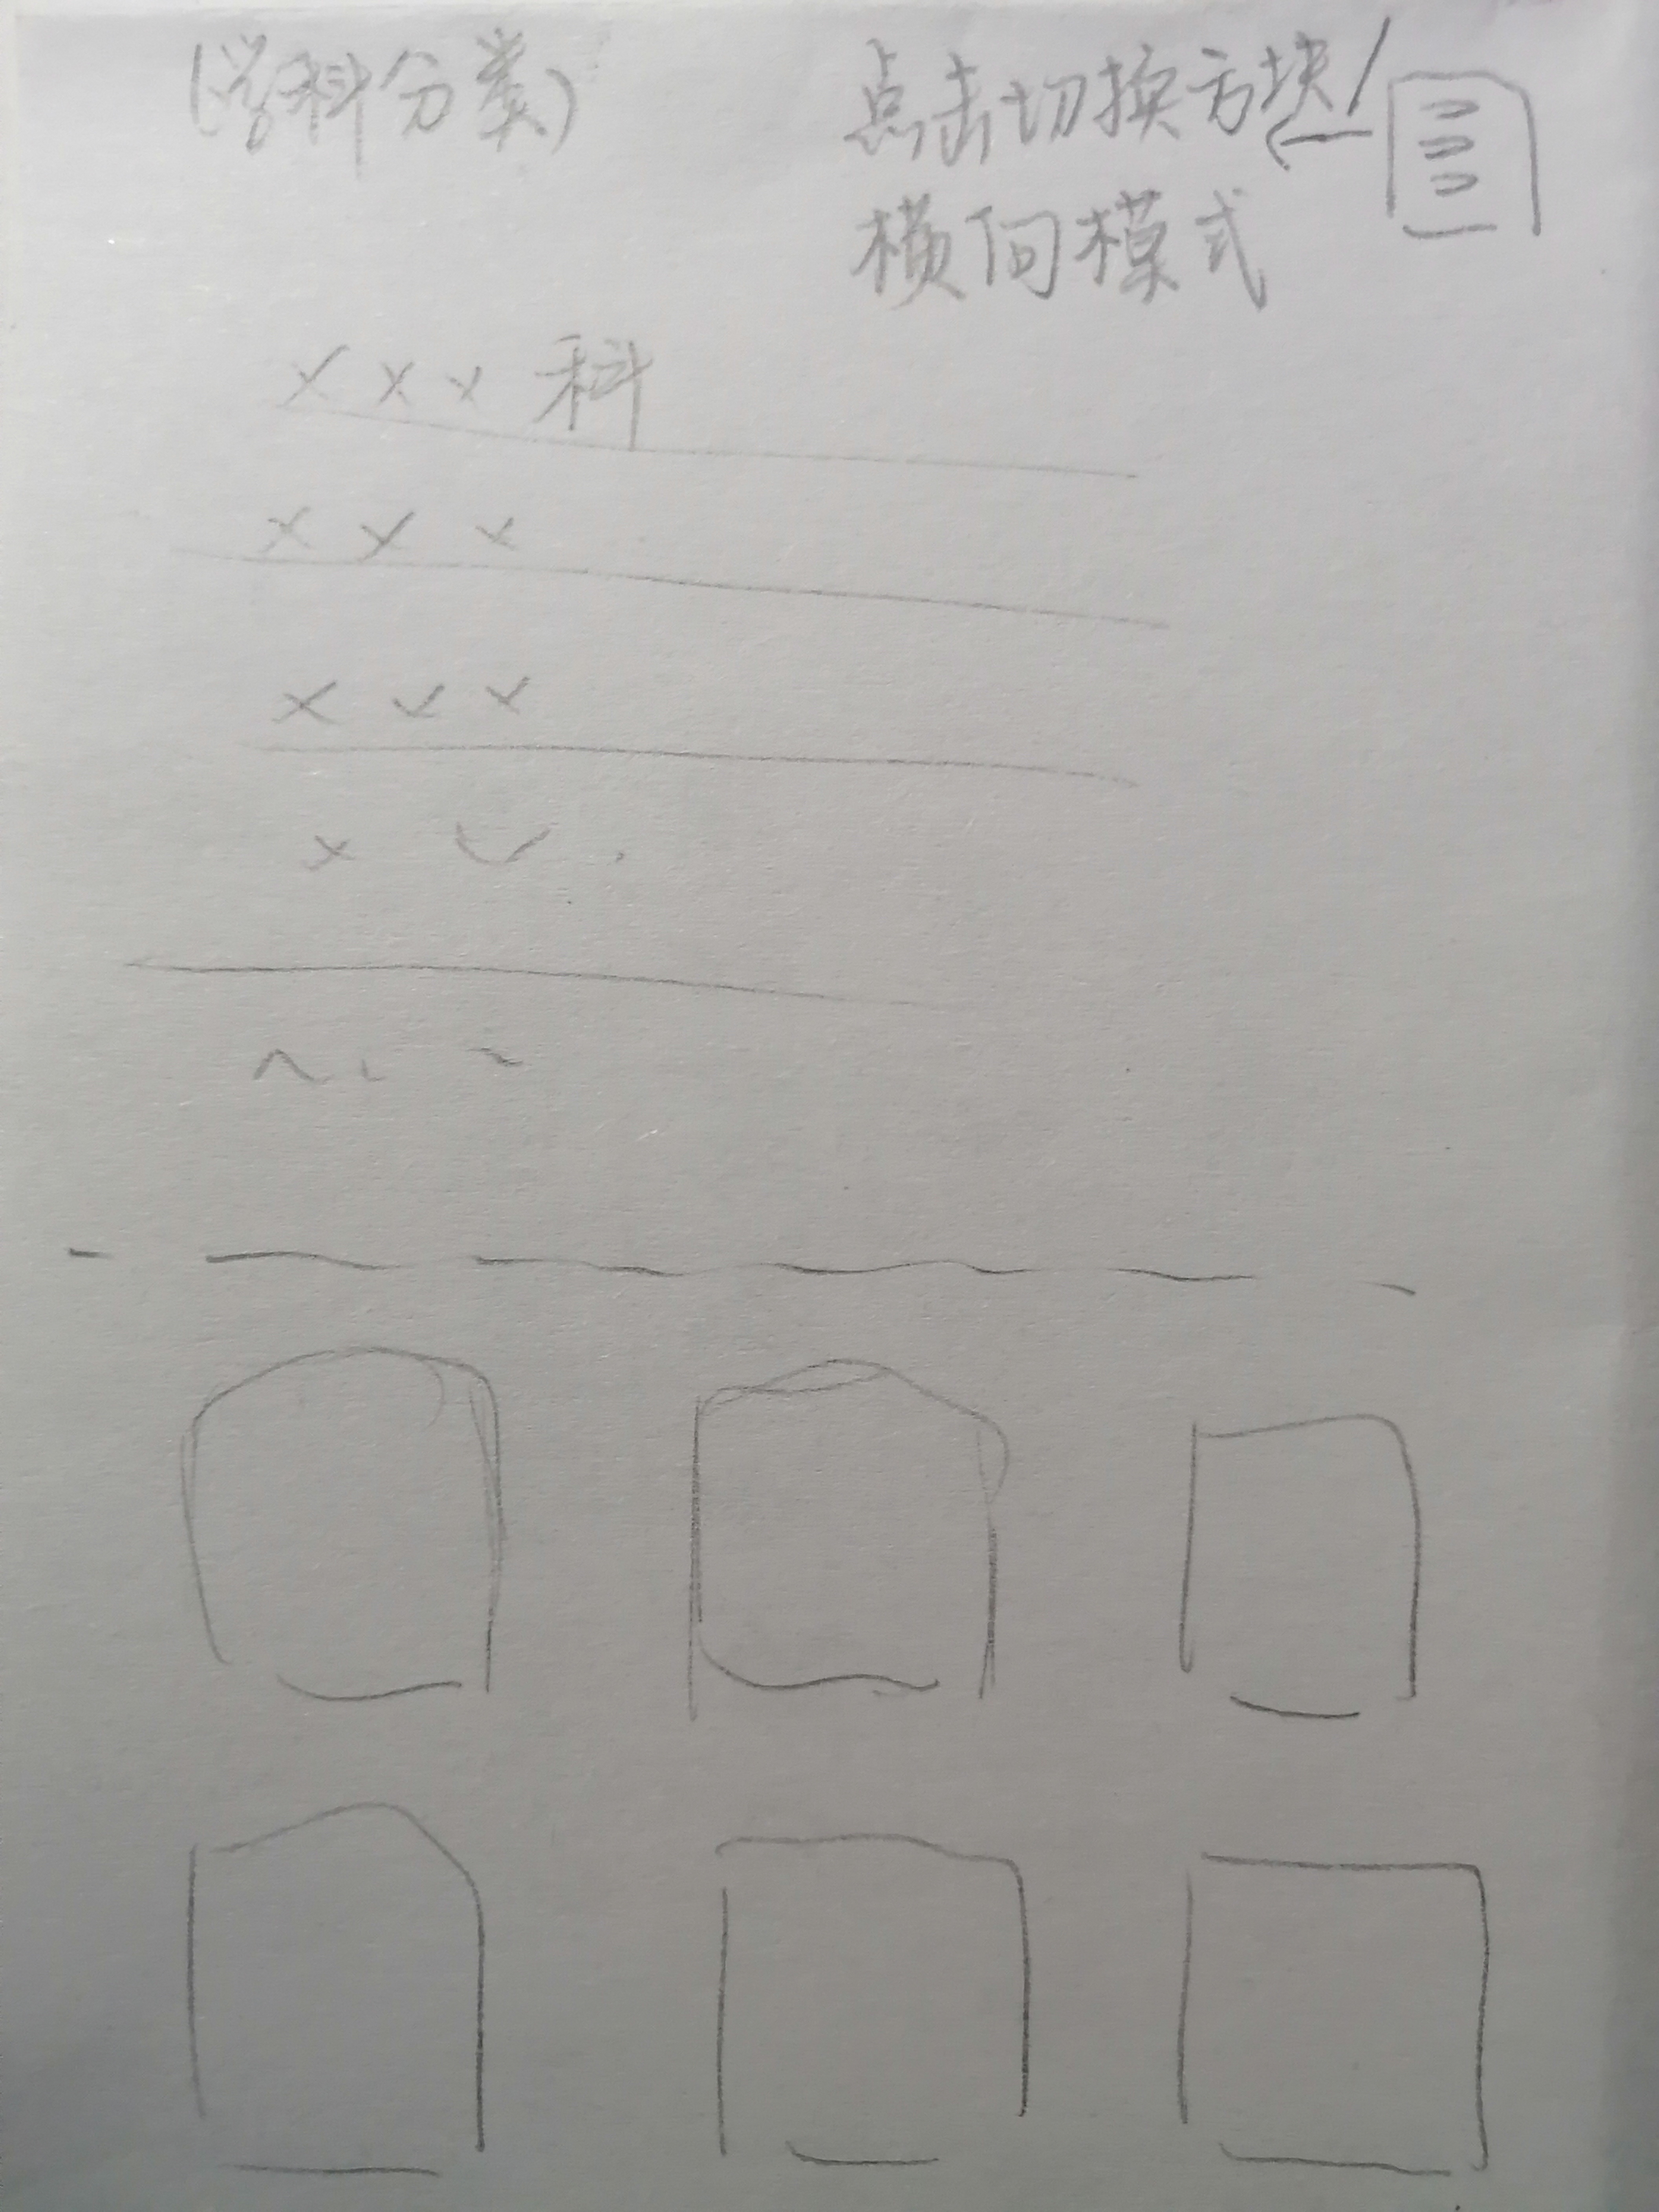 (学科分类)
点击切换方块/
横向模式
×××科
×××
×××